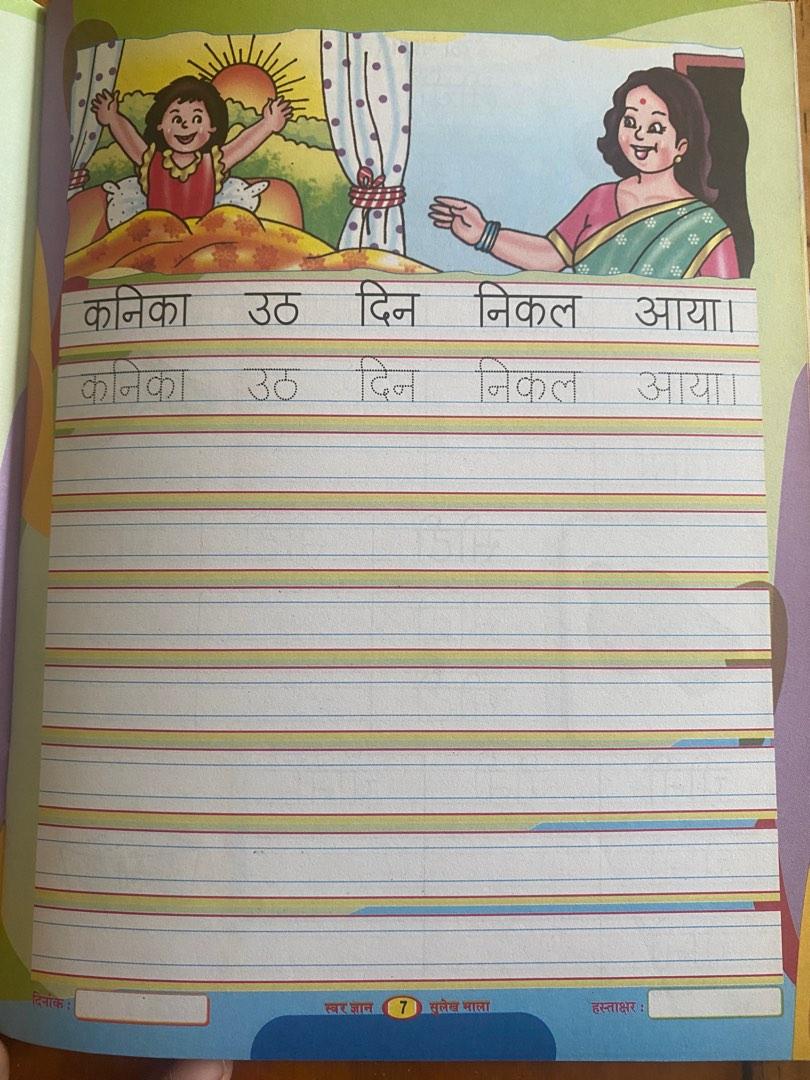 कनिका उठ दिन निकल आया।
कनिका उठ दिन निकल आया।
दिनांक : स्वर ज्ञान 7 सुलेख माला हस्ताक्षर :